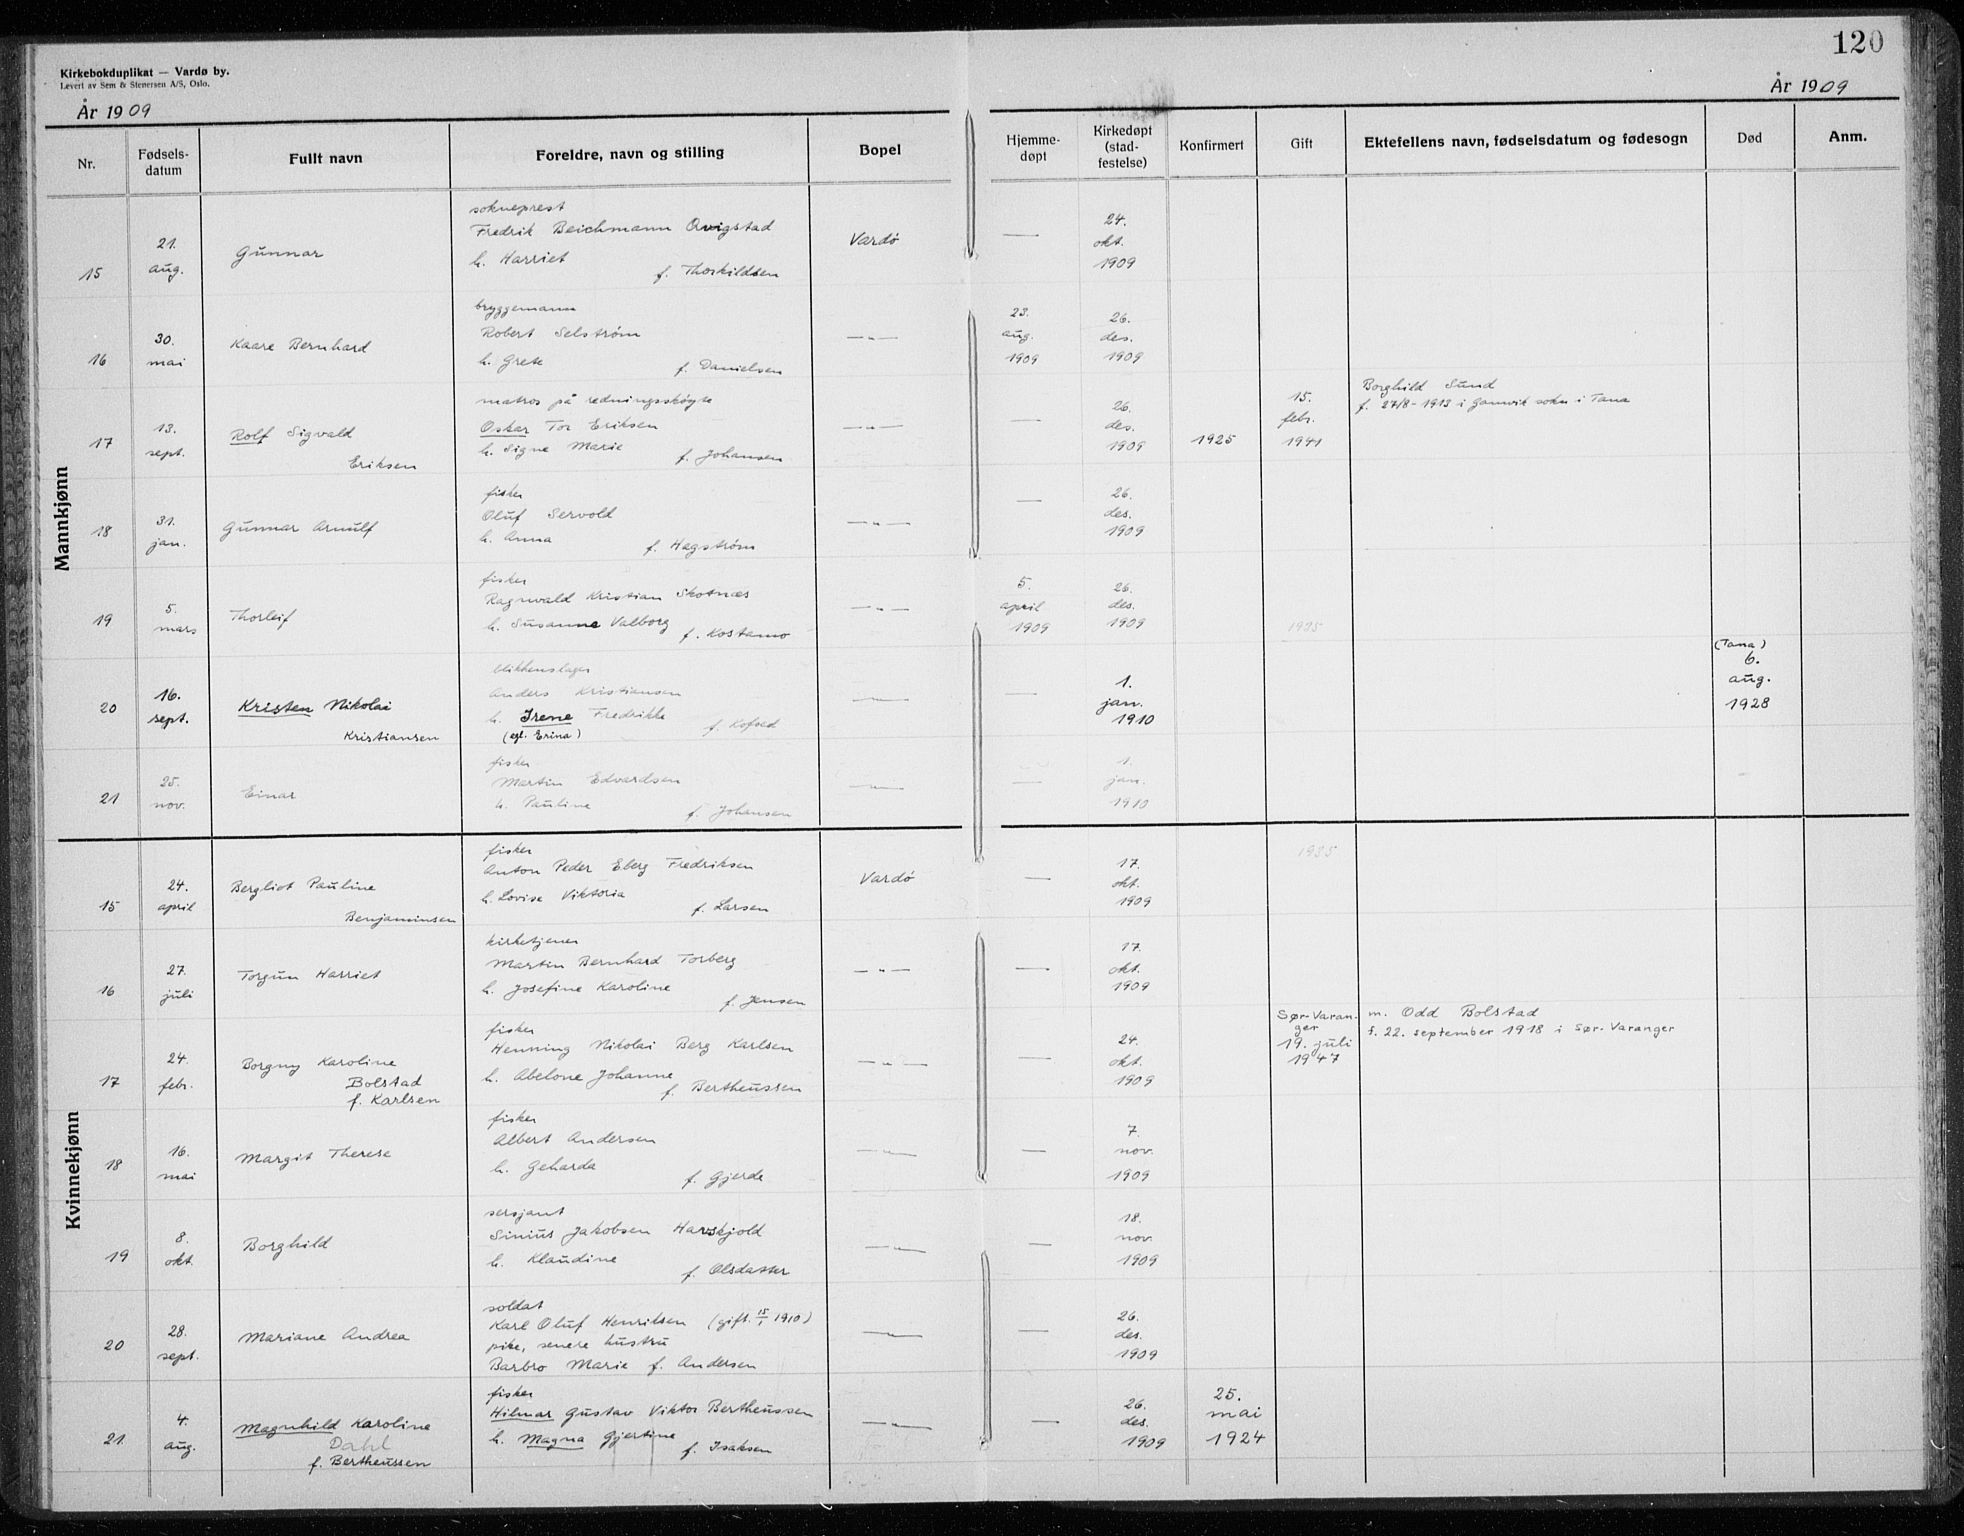 120
Kirkebokduplikat — Vardø by.
Levert av Sem & Stenersen A/S, Oslo.
År 1909
År 1909
Nr.
Fødsels-
datum
Fullt navn
Foreldre, navn og stilling
Bopel
Hjemme-
døpt
Kirkedøpt
(stad-
festelse)
Konfirmert
Gift
Ektefellens navn, fødselsdatum og fødesogn
Død
Anm.
Mannkjønn
15
21.
aug.
Gunnar
sokneprest
Fredrik Beichmann Qvigstad
h. Harriet
f. Thorkildsen
Vardø
—
24.
okt.
1909
16
30.
mai
Kaare Bernhard
bryggemann
Robert Selstrøm
h. Grete
f. Danielsen
— „ —
23.
aug.
1909
26.
des.
1909
17
13.
sept.
Rolf Sigvald
Eriksen
matros på redningsskøyte
Oskar Tor Eriksen
h. Signe Marie
f. Johansen
— „ —
—
26.
des.
1909
1925
15.
febr.
1941
Borghild Sund
f. 27/8 - 1913 i Gamvik sokn i Tana
18
31.
jan.
Gunnar Arnulf
fisker
Oluf Servold
h. Anna
f. Hagstrøm
— „ —
—
26.
des.
1909
19
5.
mars
Thorleif
fisker
Ragnvald Kristian Skotnæs
h. Susanne Valborg
f. Kostamo
— „ —
5.
april
1909
26.
des.
1909
1935
20
16.
sept.
Kristen Nikolai
Kristiansen
blikkenslager
Anders Kristiansen
h. Irene Fredrikke
(egl. Erina)
f. Kofoed
— „ —
—
1.
jan.
1910
(Tana)
6.
aug.
1928
21
25.
nov.
Einar
fisker
Martin Edvardsen
h. Pauline
f. Johansen
— „ —
—
1.
jan.
1910
Kvinnekjønn
15
24.
april
Bergliot Pauline
Benjaminsen
fisker
Anton Peder Eberg Fredriksen
h. Lovise Viktoria
f. Larsen
Vardø
—
17.
okt.
1909
1935
16
27.
juli
Torgun Harriet
kirketjener
Martin Bernhard Torberg
h. Josefine Karoline
f. Jensen
— „ —
—
17.
okt.
1909
17
24
febr.
Borgny Karoline
Bolstad
f. Karlsen
fisker
Henning Nikolai Berg Karlsen
h. Abelone Johanne
f. Bertheussen
— „ —
—
24.
okt.
1909
Sør-Varan-
ger
19. juli
1947
m. Odd Bolstad
f. 22. september 1918 i Sør-Varanger
18
16.
mai
Margit Therese
fisker
Albert Andersen
h. Geharda
f. Gjerde
— „ —
—
7.
nov.
1909
19
8.
okt.
Borghild
sersjant
Sinius Jakobsen Harskjold
h. Klaudine
f. Olsdatter
— „ —
—
18.
nov.
1909
20
28.
sept.
Mariane Andrea
soldat
Karl Oluf Henriksen (gift. 15/1 1910)
pike, senere hustru
Barbro Marie f. Andersen
— „ —
—
26.
des.
1909
21.
4.
aug.
Magnhild Karoline
Dahl
f. Bertheussen
fisker
Hilmar Gustav Viktor Bertheussen
h. Magna Gjertine
f. Isaksen
— „ —
—
26.
des.
1909
25.
mai
1924